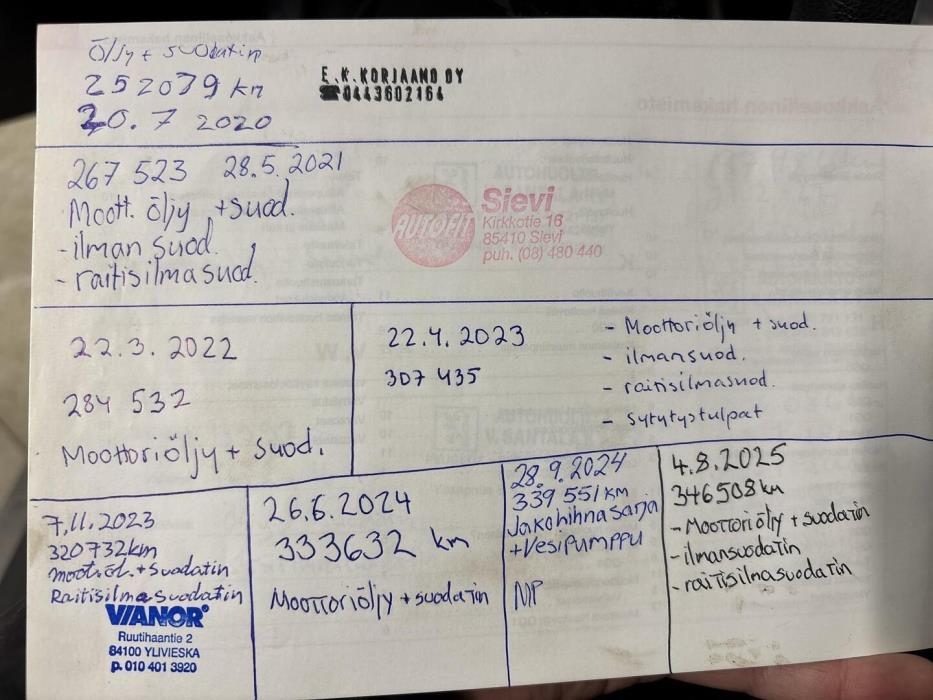 Öljy + suodatin
252079 km
20.7 2020
E.K.KORJAAMO OY
☎0443602164
267 523 28.5.2021
Moott. öljy + suod.
- ilman suod.
- raitisilmasuod.
AUTOFIT
Sievi
Kirkkotie 16
85410 Sievi
puh. (08) 480 440
22.3. 2022
284 532
Moottoriöljy + suod.
22.4. 2023
307 435
- Moottoriöljy + suod.
- ilmansuod.
- raitisilmasuod.
- sytytystulpat
7.11.2023
320732km
moot.öl. + Suodatin
Raitisilmasuodatin
VIANOR
Ruutihaantie 2
84100 YLIVIESKA
p. 010 401 3920
26.6.2024
333632 km
Moottoriöljy + suodatin
28.9.2024
339 551 km
Jakohihnasarja
+ Vesipumppu
NP
4.8.2025
346508 km
- Moottoriöljy + suodatin
- ilmansuodatin
- raitisilmasuodatin